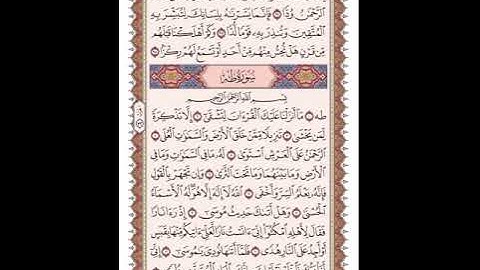 الرَّحْمَٰنُ وُدًّا ۝ فَإِنَّمَا يَسَّرْنَٰهُ بِلِسَانِكَ لِتُبَشِّرَ بِهِ
الْمُتَّقِينَ وَتُنذِرَ بِهِ قَوْمًا لُّدًّا ۝ وَكَمْ أَهْلَكْنَا قَبْلَهُم
مِّن قَرْنٍ هَلْ تُحِسُّ مِنْهُم مِّنْ أَحَدٍ أَوْ تَسْمَعُ لَهُمْ رِكْزًا ۝
سُورَةُ طه
بِسْمِ اللَّهِ الرَّحْمَٰنِ الرَّحِيمِ
طه ۝ مَا أَنزَلْنَا عَلَيْكَ الْقُرْءَانَ لِتَشْقَىٰ ۝ إِلَّا تَذْكِرَةً
لِّمَن يَخْشَىٰ ۝ تَنزِيلًا مِّمَّنْ خَلَقَ الْأَرْضَ وَالسَّمَٰوَٰتِ الْعُلَى ۝
الرَّحْمَٰنُ عَلَى الْعَرْشِ اسْتَوَىٰ ۝ لَهُ مَا فِي السَّمَٰوَٰتِ وَمَا فِي
الْأَرْضِ وَمَا بَيْنَهُمَا وَمَا تَحْتَ الثَّرَىٰ ۝ وَإِن تَجْهَرْ بِالْقَوْلِ
فَإِنَّهُ يَعْلَمُ السِّرَّ وَأَخْفَى ۝ اللَّهُ لَا إِلَٰهَ إِلَّا هُوَ لَهُ الْأَسْمَاءُ
الْحُسْنَىٰ ۝ وَهَلْ أَتَىٰكَ حَدِيثُ مُوسَىٰ ۝ إِذْ رَءَا نَارًا
فَقَالَ لِأَهْلِهِ امْكُثُوا إِنِّي ءَانَسْتُ نَارًا لَّعَلِّي ءَاتِيكُم مِّنْهَا بِقَبَسٍ
أَوْ أَجِدُ عَلَى النَّارِ هُدًى ۝ فَلَمَّا أَتَىٰهَا نُودِيَ يَٰمُوسَىٰ ۝ إِنِّي